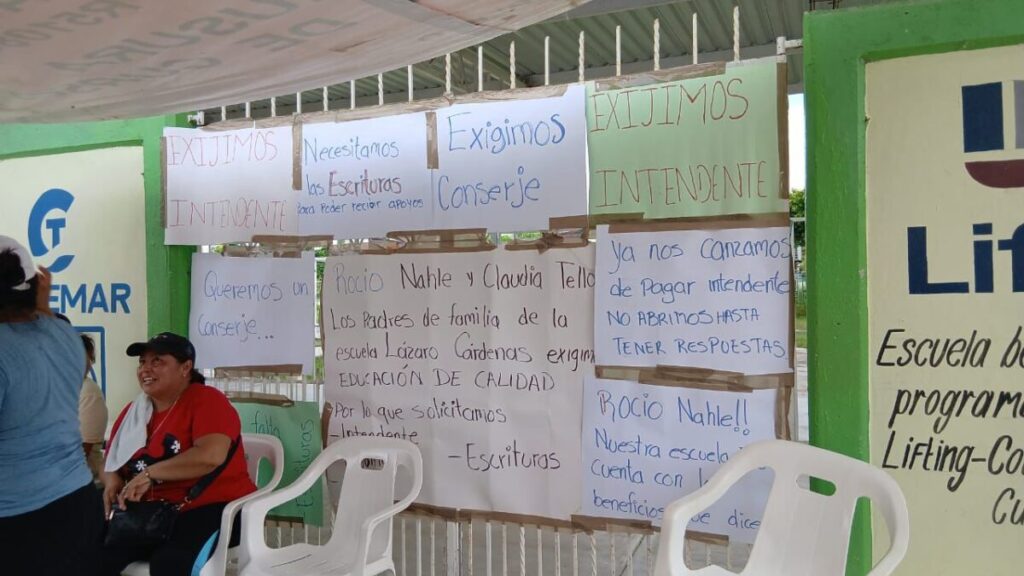 EXIJIMOS
INTENDENTE
Necesitamos
las Escrituras
Para poder recibir apoyos
Exigimos
Conserje
EXIJIMOS
INTENDENTE
Queremos un
Conserje...
Rocio Nahle y Claudia Tello
Los Padres de familia de la
escuela Lázaro Cárdenas exigim
EDUCACIÓN DE CALIDAD
Por lo que solicitamos
-Intendente
-Escrituras
Ya nos canzamos
de Pagar intendente
NO ABRIMOS HASTA
TENER RESPUESTAS
Rocio Nahle!!
Nuestra escuela
cuenta con
beneficios que dice
falta
EMAR
Lif
Escuela b
program
Lifting-Co
Cu